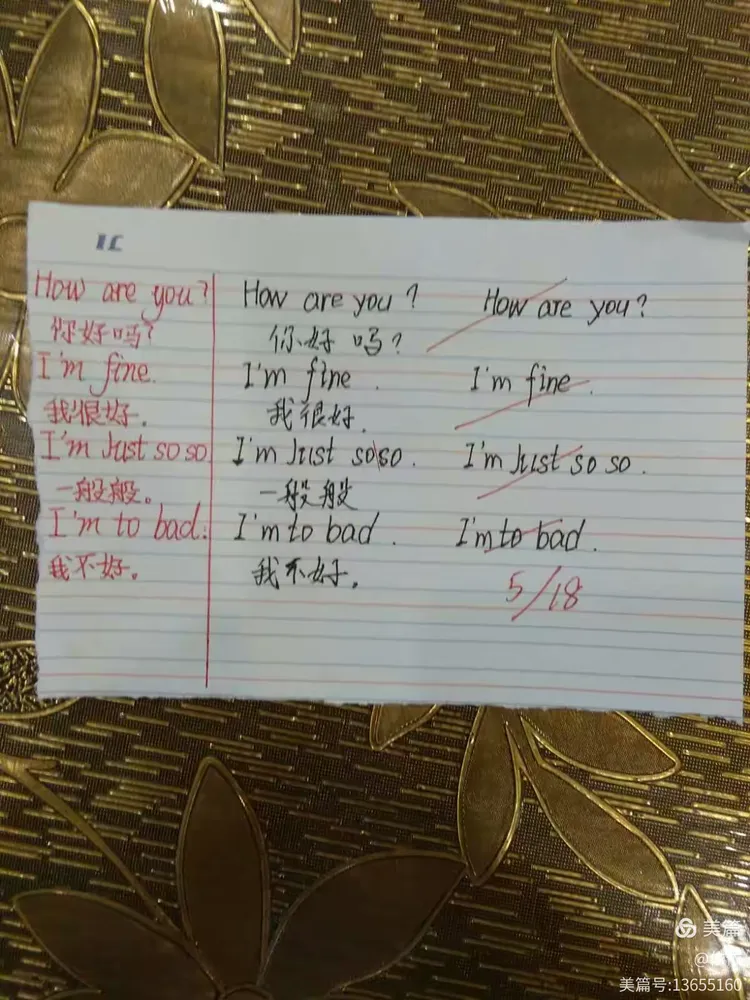 How are you? How are you? How are you?
你好吗? 你好吗?
I'm fine. I'm fine. I'm fine.
我很好. 我很好.
I'm Just so so I'm Just so so. I'm Just so so.
一般般。 一般般
I'm to bad. I'm to bad. I'm to bad.
我不好. 我不好.
5/18
美篇
美篇号:13655160